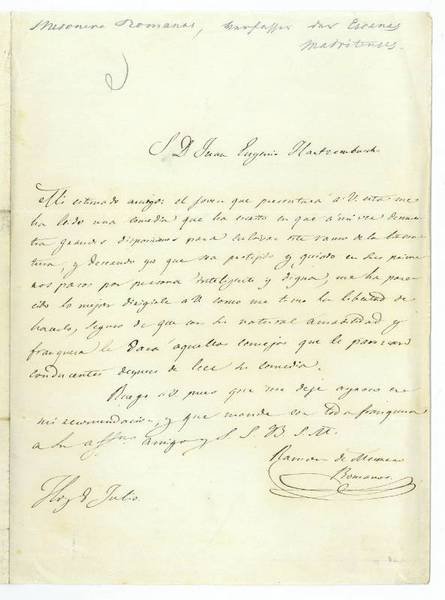 Mesonero Romanos, Verfasser der Escenas
Matritenses.
S D Juan Eugenio Hartzembusch
Mi estimado amigo: el joven que presentará a V. esta me
ha leido una comedia que ha escrito en que a mi ver demues
tra grandes disposiciones para cultivar este ramo de la litera
tura, y deseando yo que sea protejido y guiado en sus prime
ros pasos por persona inteligente y digna, me ha pare
cido lo mejor dirigirle a V como me tomo la libertad de
hacerlo, seguro de que con su natural amabilidad y
franqueza le dara aquellos consejos que le parezcan
conducentes despues de leer la comedia.
Ruego a V. pues que me deje ayroso en
mi recomendacion, y que mande con toda franqueza
a su affmo amigo y S. S. B. S. M.
Ramon de Mesonero
Romanos
Hoy 8 Julio